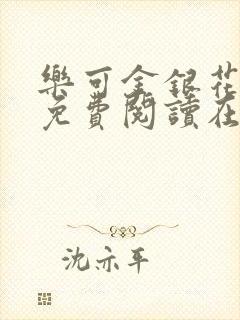 樂可金銀花
免費閱讀在
沈亦平